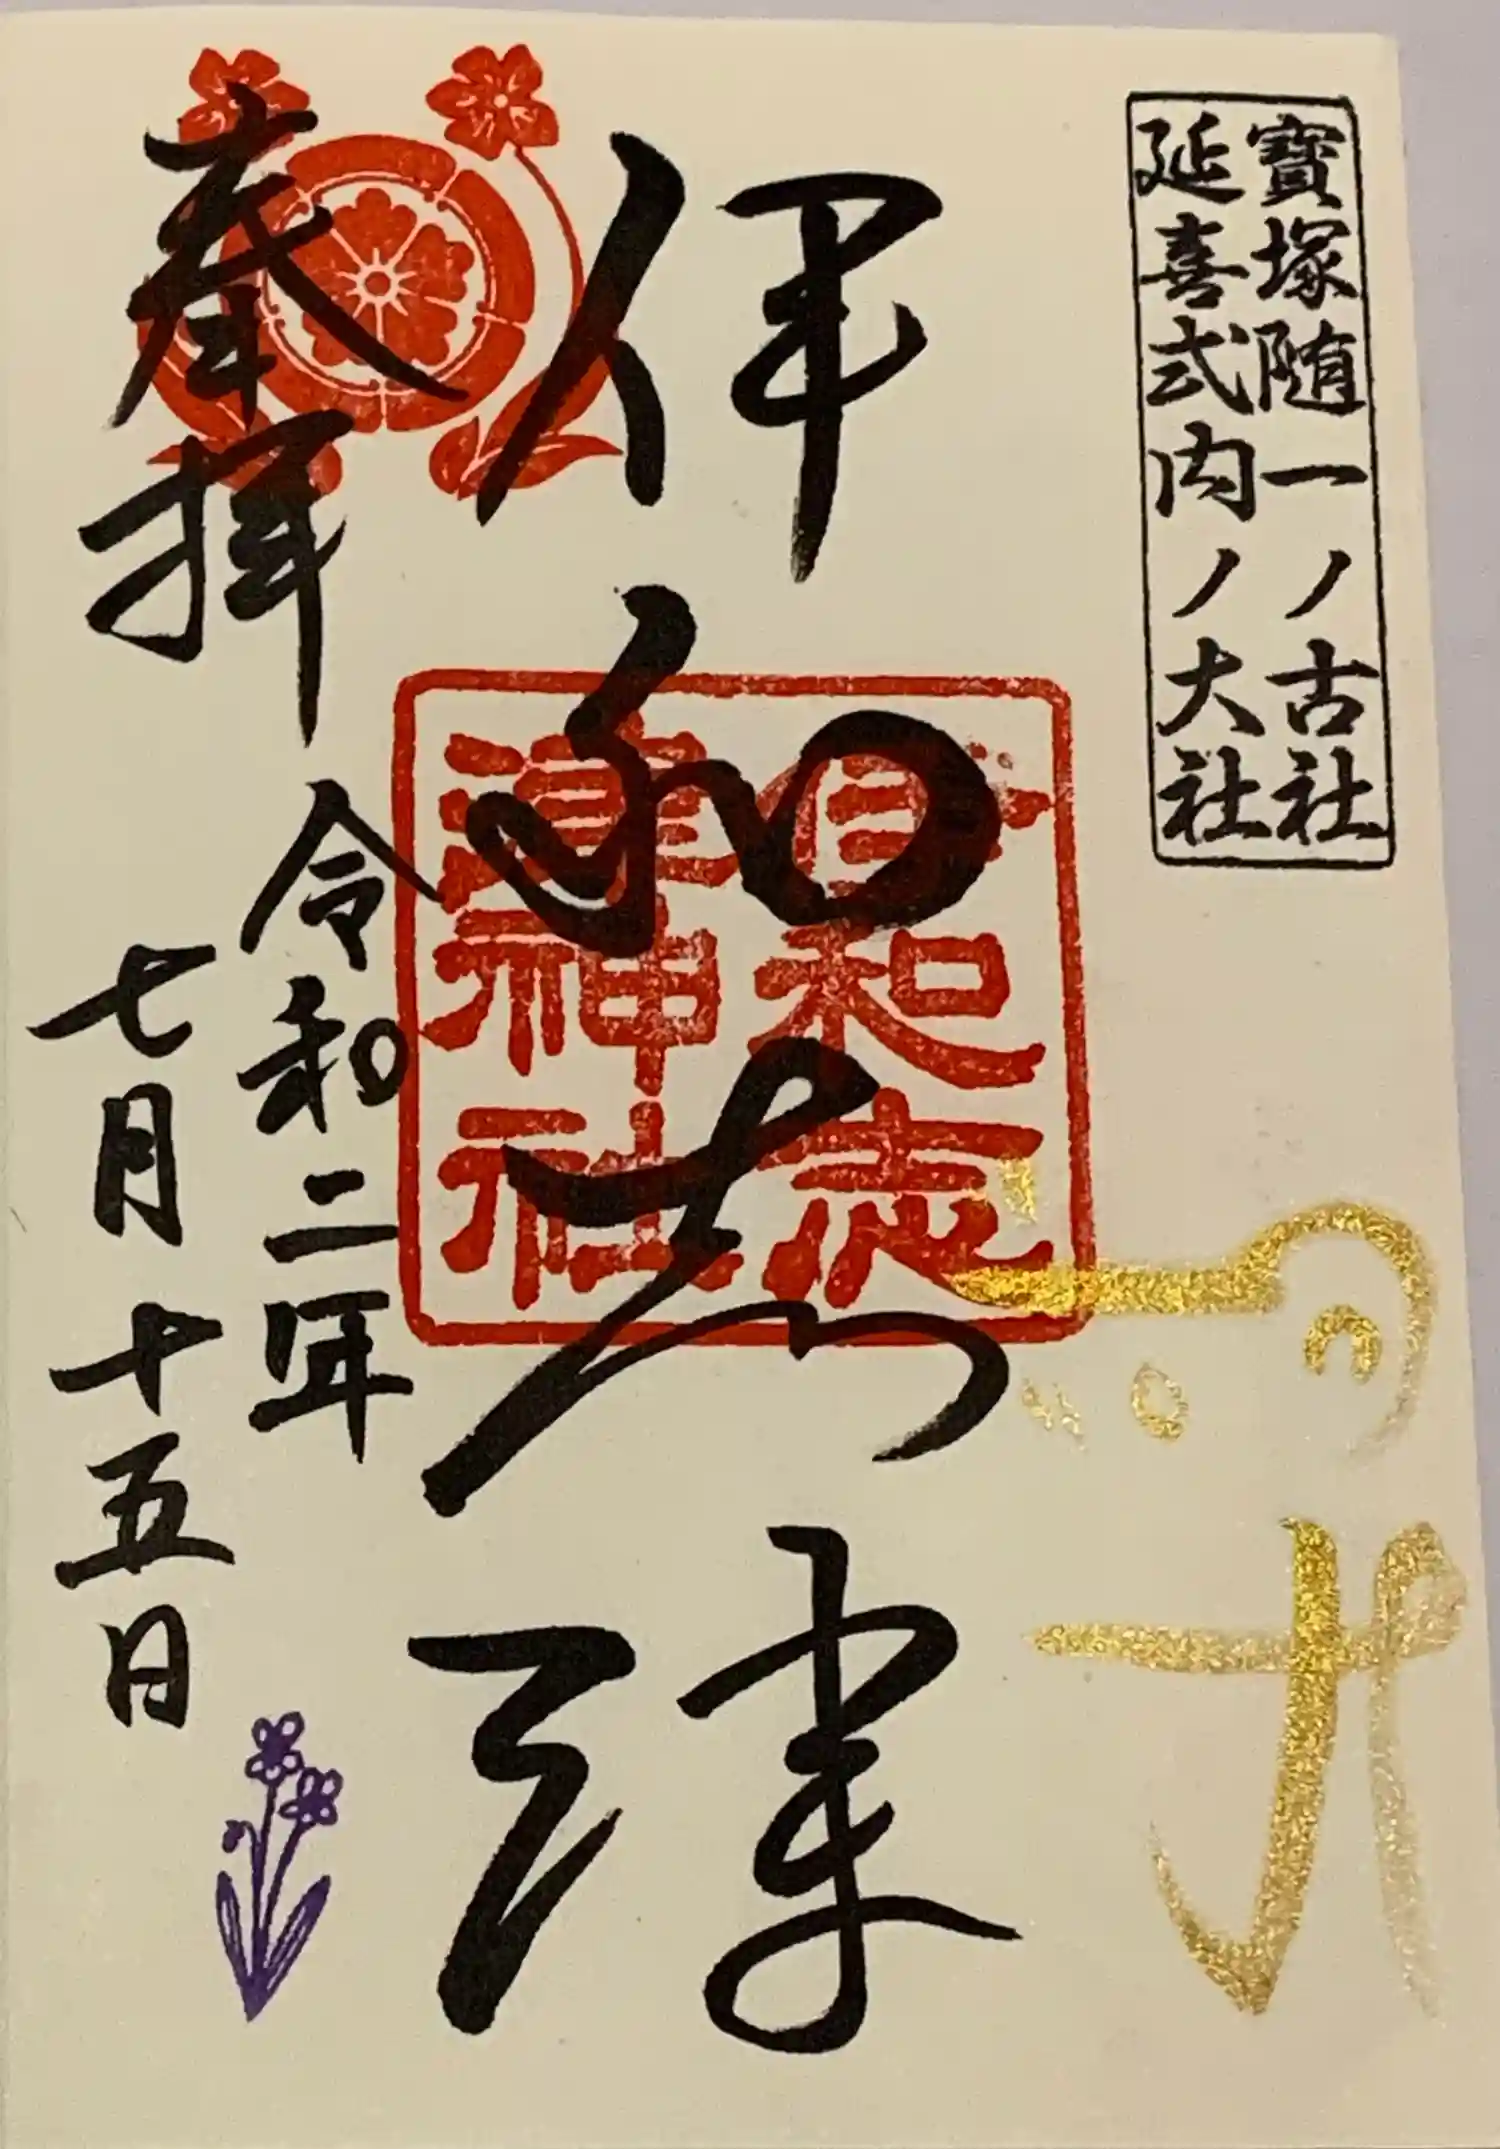 寶塚随一ノ古社
延喜式内ノ大社
伊和志津
伊和志
津神社
奉拝
令和二年
七月十五日